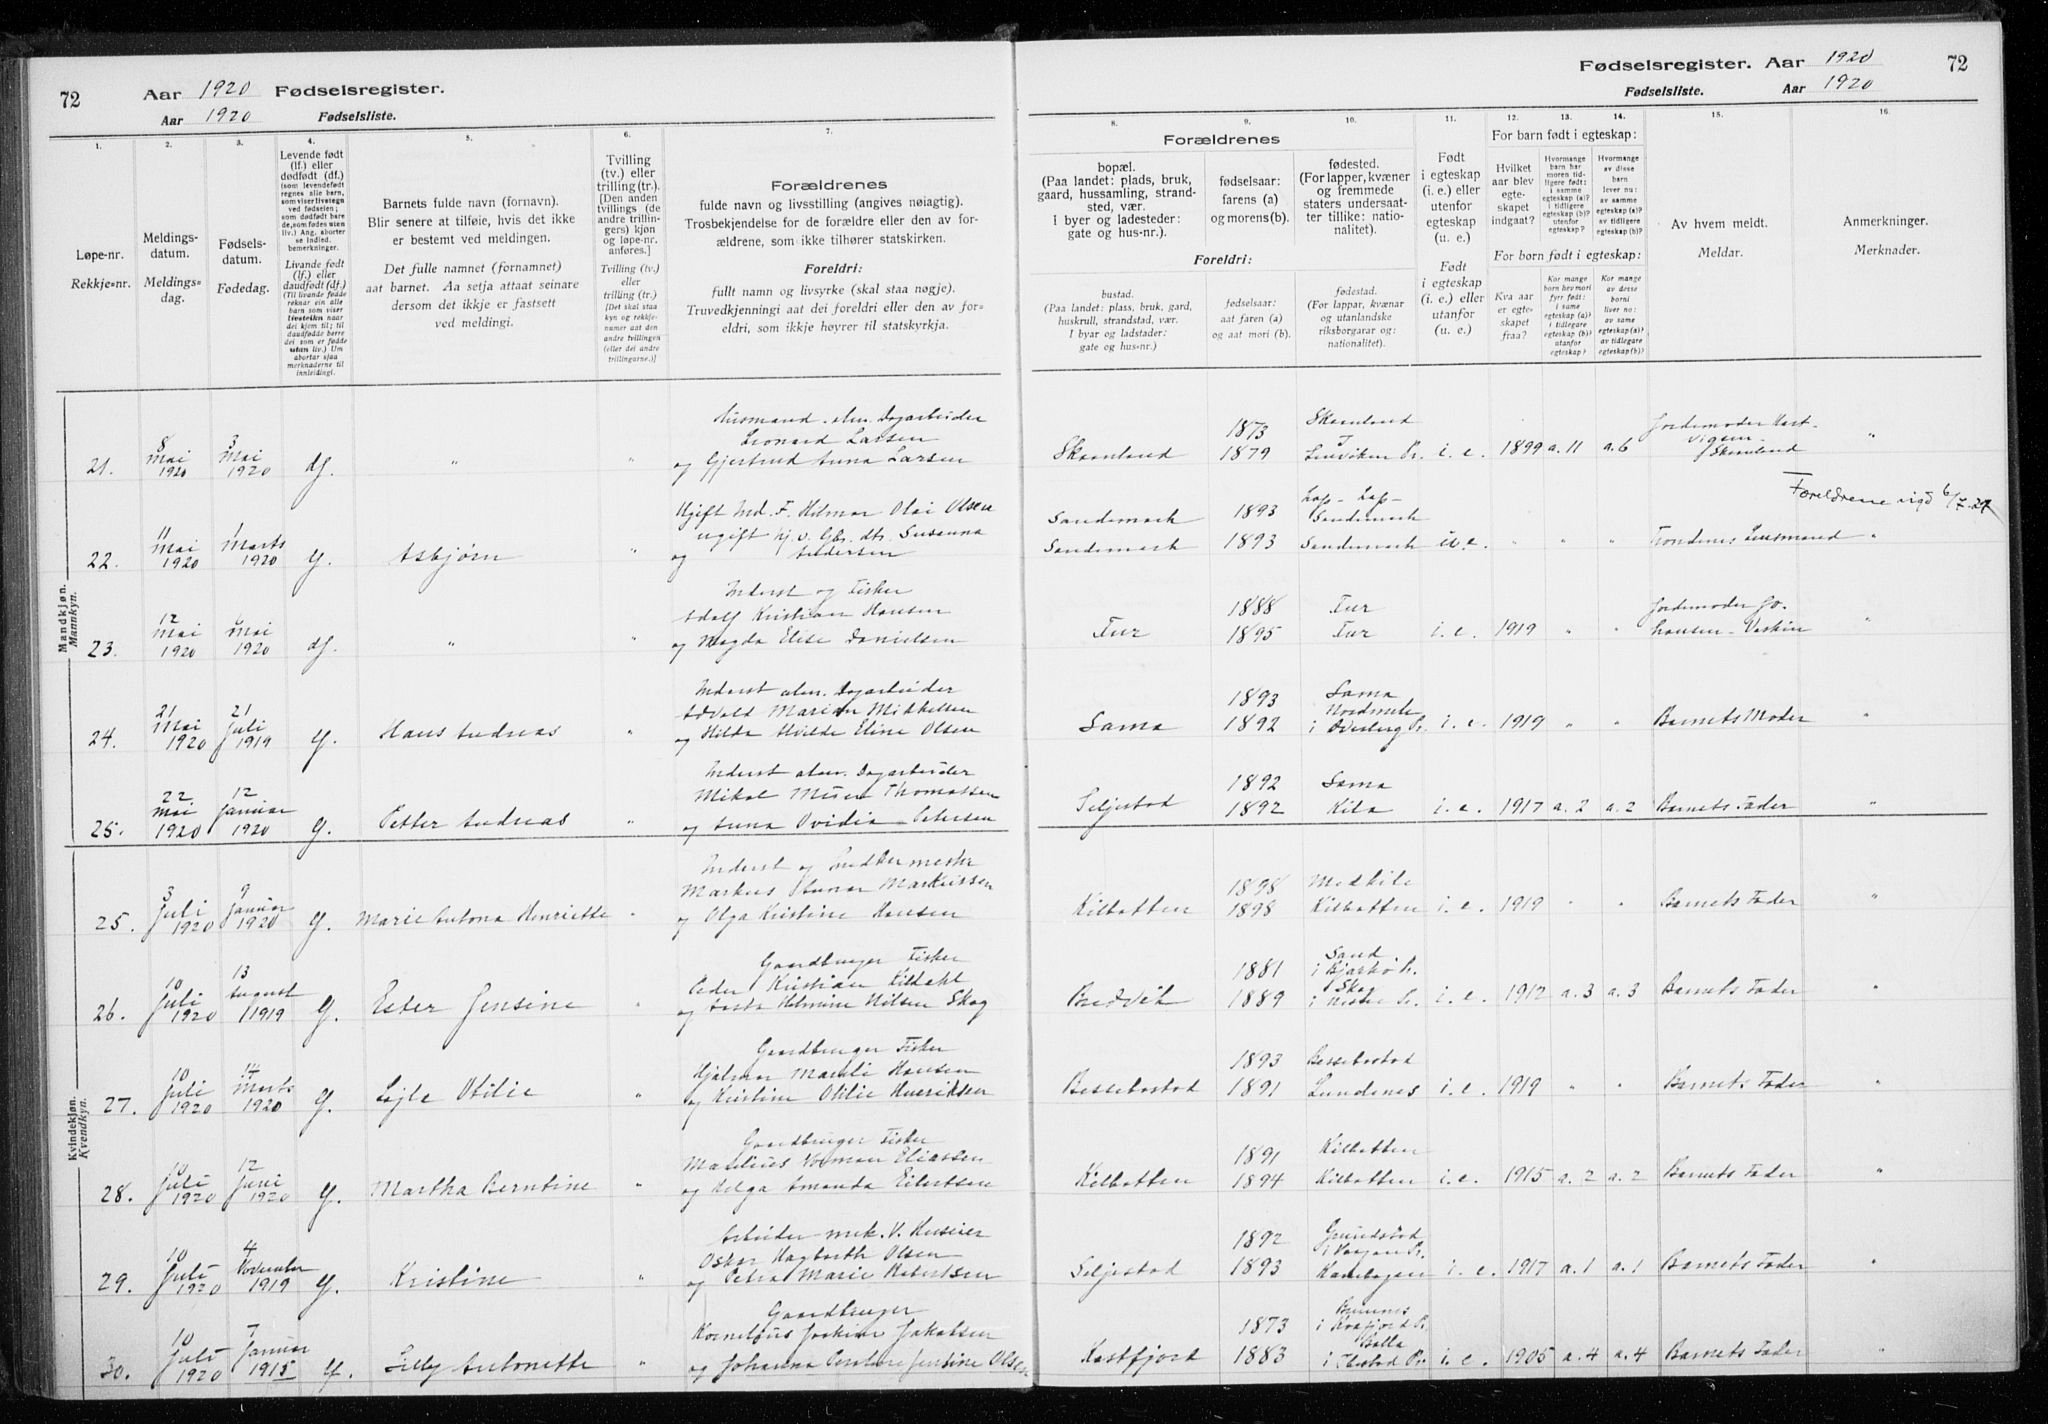 72
Aar 1920 Fødselsregister.
Aar 1920 Fødselsliste.
Fødselsregister. Aar 1920
Fødselsliste. Aar 1920
72
1.
Løpe-nr.
Rekkje=nr.
2.
Meldings-
datum.
Meldings=
dag.
3.
Fødsels-
datum.
Fødedag.
4.
Levende født
(lf.) eller
dødfødt (df.)
(som levendefødt
regnes alle barn,
som viser livstegn
ved fødselen;
som dødfødt bare
de, som fødes uten
liv.) Ang. aborter
se indled.
bemerkninger.
Livande født
(lf.) eller
daudfødt (df.)
(Til livande fødde
reknar ein alle
barn som viser
livsteikn naar
dei kjem til; til
daudfødde berre
dei som er fødde
utan liv.) Um
abortar sjaa
merknaderne til
innleidingi.
5.
Barnets fulde navn (fornavn).
Blir senere at tilføie, hvis det ikke
er bestemt ved meldingen.
Det fulle namnet (fornamnet)
aat barnet. Aa setja attaat seinare
dersom det ikkje er fastsett
ved meldingi.
6.
Tvilling
(tv.) eller
trilling (tr.).
[Den anden
tvillings (de
andre trillin-
gers) kjøn
og løpe-nr.
anføres.]
Tvilling (tv.)
eller
trilling (tr.)
[Det skal staa
kyn og rekkje-
numer aat den
andre tvillingen
(eller dei andre
trillingarne.)]
7.
Forældrenes
fulde navn og livsstilling (angives nøiagtig).
Trosbekjendelse for de forældre eller den av for-
ældrene, som ikke tilhører statskirken.
Foreldri:
fullt namn og livsyrke (skal staa nøgje).
Truvedkjenningi aat dei foreldri eller den av for=
eldri, som ikkje høyrer til statskyrkja.
Forældrenes
8.
bopæl.
(Paa landet: plads, bruk,
gaard, hussamling, strand-
sted, vær.
I byer og ladesteder:
gate og hus-nr.).
9.
fødselsaar:
farens (a)
og morens (b).
10.
fødested.
(For lapper, kvæner
og fremmede
staters undersaat-
ter tillike: natio-
nalitet).
Foreldri:
bustad.
(Paa landet: plass, bruk, gard,
huskrull, strandstad, vær.
I byar og ladstader:
gate og hus-nr.)
fødselsaar:
aat faren (a)
og aat mori (b).
fødestad.
(For lappar, kvænar
og utanlandske
riksborgarar og:
nationalitet.)
11.
Født
i egteskap
(i. e.) eller
utenfor
egteskap
(u. e.)
Født
i egteskap
(i. e.) eller
utanfor
(u. e.)
For barn født i egteskap:
12.
Hvilket
aar blev
egte-
skapet
indgaat?
13.
Hvormange
barn har
moren tid-
ligere født:
i samme
egteskap (a)?
i tidligere
egteskap (b)?
utenfor
egteskap?
14.
Hvormange
av disse
barn
lever nu:
av samme
egteskap (a)?
av tidligere
egteskap (b)?
For born født i egteskap:
Kva aar
er egte-
skapet
fraa?
Kor mange
born hev mori
fyrr født:
i same
egteskap (a)?
i tidlegare
egteskap (b)?
utanfor
egteskap?
Kor mange
av desse
borni
liver no:
av same
egteskap (a)?
av tidlegare
egteskap (b)?
15.
Av hvem meldt.
Meldar.
16.
Anmerkninger.
Merknader.
Mandkjøn.
Mannkyn.
21. 8 Mai 1920 3 Mai 1920 df. " "
Husmand. alm. Dagarbeider
Leonard Larsen
og Gjertrud Anna Larsen
Skaanland 1873 1879 Skaanland Lenviken Pr. i. e. 1899 a. 11 a. 6 Jordemoder "
Skaanland
22. 11 Mai 1920 1 Marts 1920 g. Asbjørn "
Ugift Md. F. Hilmar Olai Olsen
ugift Susanna
og Andersen
Sandemark 1893 Lap - Lap -
Sandemark
Sandemark 1893 Sandemark u. e. " " " Trondenes Lensmand "
Foreldrene vigd 6/7-27
23. 12 Mai 1920 Mai 1920 df. " "
Inderst og Fisker
Adolf Kristian Hansen
og Magda Elise Danielsen
Fur 1888 1895 Fur Fur i. e. 1919 " " Jordemoder Jo-
hansen - Vaskin "
24. 21 Mai 1920 21 Juli 1919 g. Hans Andreas "
Inderst alm. Dagarbeider
Edvald Marion Mikkelsen
og Hilda Alvilde Eline Olsen
Sama 1893 1892 Sama
i Øverberg Pr. i. e. 1919 " " Barnets Moder "
25. 22 Mai 1920 12 Januar 1920 g. Petter Andreas "
Inderst alm. Dagarbeider
Mikal Thomassen
og Anna Ovidia Petersen
Seljestad 1892 1892 Sama Kila i. e. 1917 a. 2 a. 2 Barnets Fader "
Kvindekjøn.
Kvendkyn.
25. 3 Juli 1920 9 Januar 1920 g. Marie Antona Henriette "
Inderst og
Markus Markussen
og Olga Kristine Hansen
Kilbotten 1898 1898 Medkile Kilbotten i. e. 1919 " " Barnets Fader "
26. 10 Juli 1920 13 August 1919 g. Ester Jensine "
Gaardbruger Fisker
Peder Kristian Kildahl
og Hilmine Nilsen Skog
Bredvik 1881 1889 Sand i Bjarkø Pr. Skog i Nesne Pr. i. e. 1912 a. 3 a. 3 Barnets Fader "
27. 10 Juli 1920 14 Marts 1920 g. Otilie "
Gaardbruger Fisker
Hjalmar Hansen
og Kristine Otilie Henriksen
Bessebostad 1893 1891 Bessebostad Lundenes i. e. 1919 " " Barnets Fader "
28. 10 Juli 1920 12 Juni 1920 g. Martha Berntine "
Gaardbruger Fisker
Marelius Norman Eliassen
og Helga Amanda Eilertsen
Kilbotten 1891 1894 Kilbotten Kilbotten i. e. 1915 a. 2 a. 2 Barnets Fader "
29. 10 Juli 1920 4 November 1919 g. Kristine "
Arbeider mek. V. Huseier
Oskar Hagbarth Olsen
og Petra Marie Robertsen
Seljestad 1892 1893 Grundstad i Vaagan Pr. Kanebogen i. e. 1917 a. 1 a. 1 Barnets Fader "
30. 10 Juli 1920 7 Januar 1915 g. Lilly Antonette "
Gaardbruger
Kornelius Joakim Jakobsen
og Johanna Jensine Olsen
Kastfjord 1873 1883 i Kvæfjord Pr. i Ibestad Pr. i. e. 1905 a. 4 a. 4 Barnets Fader "